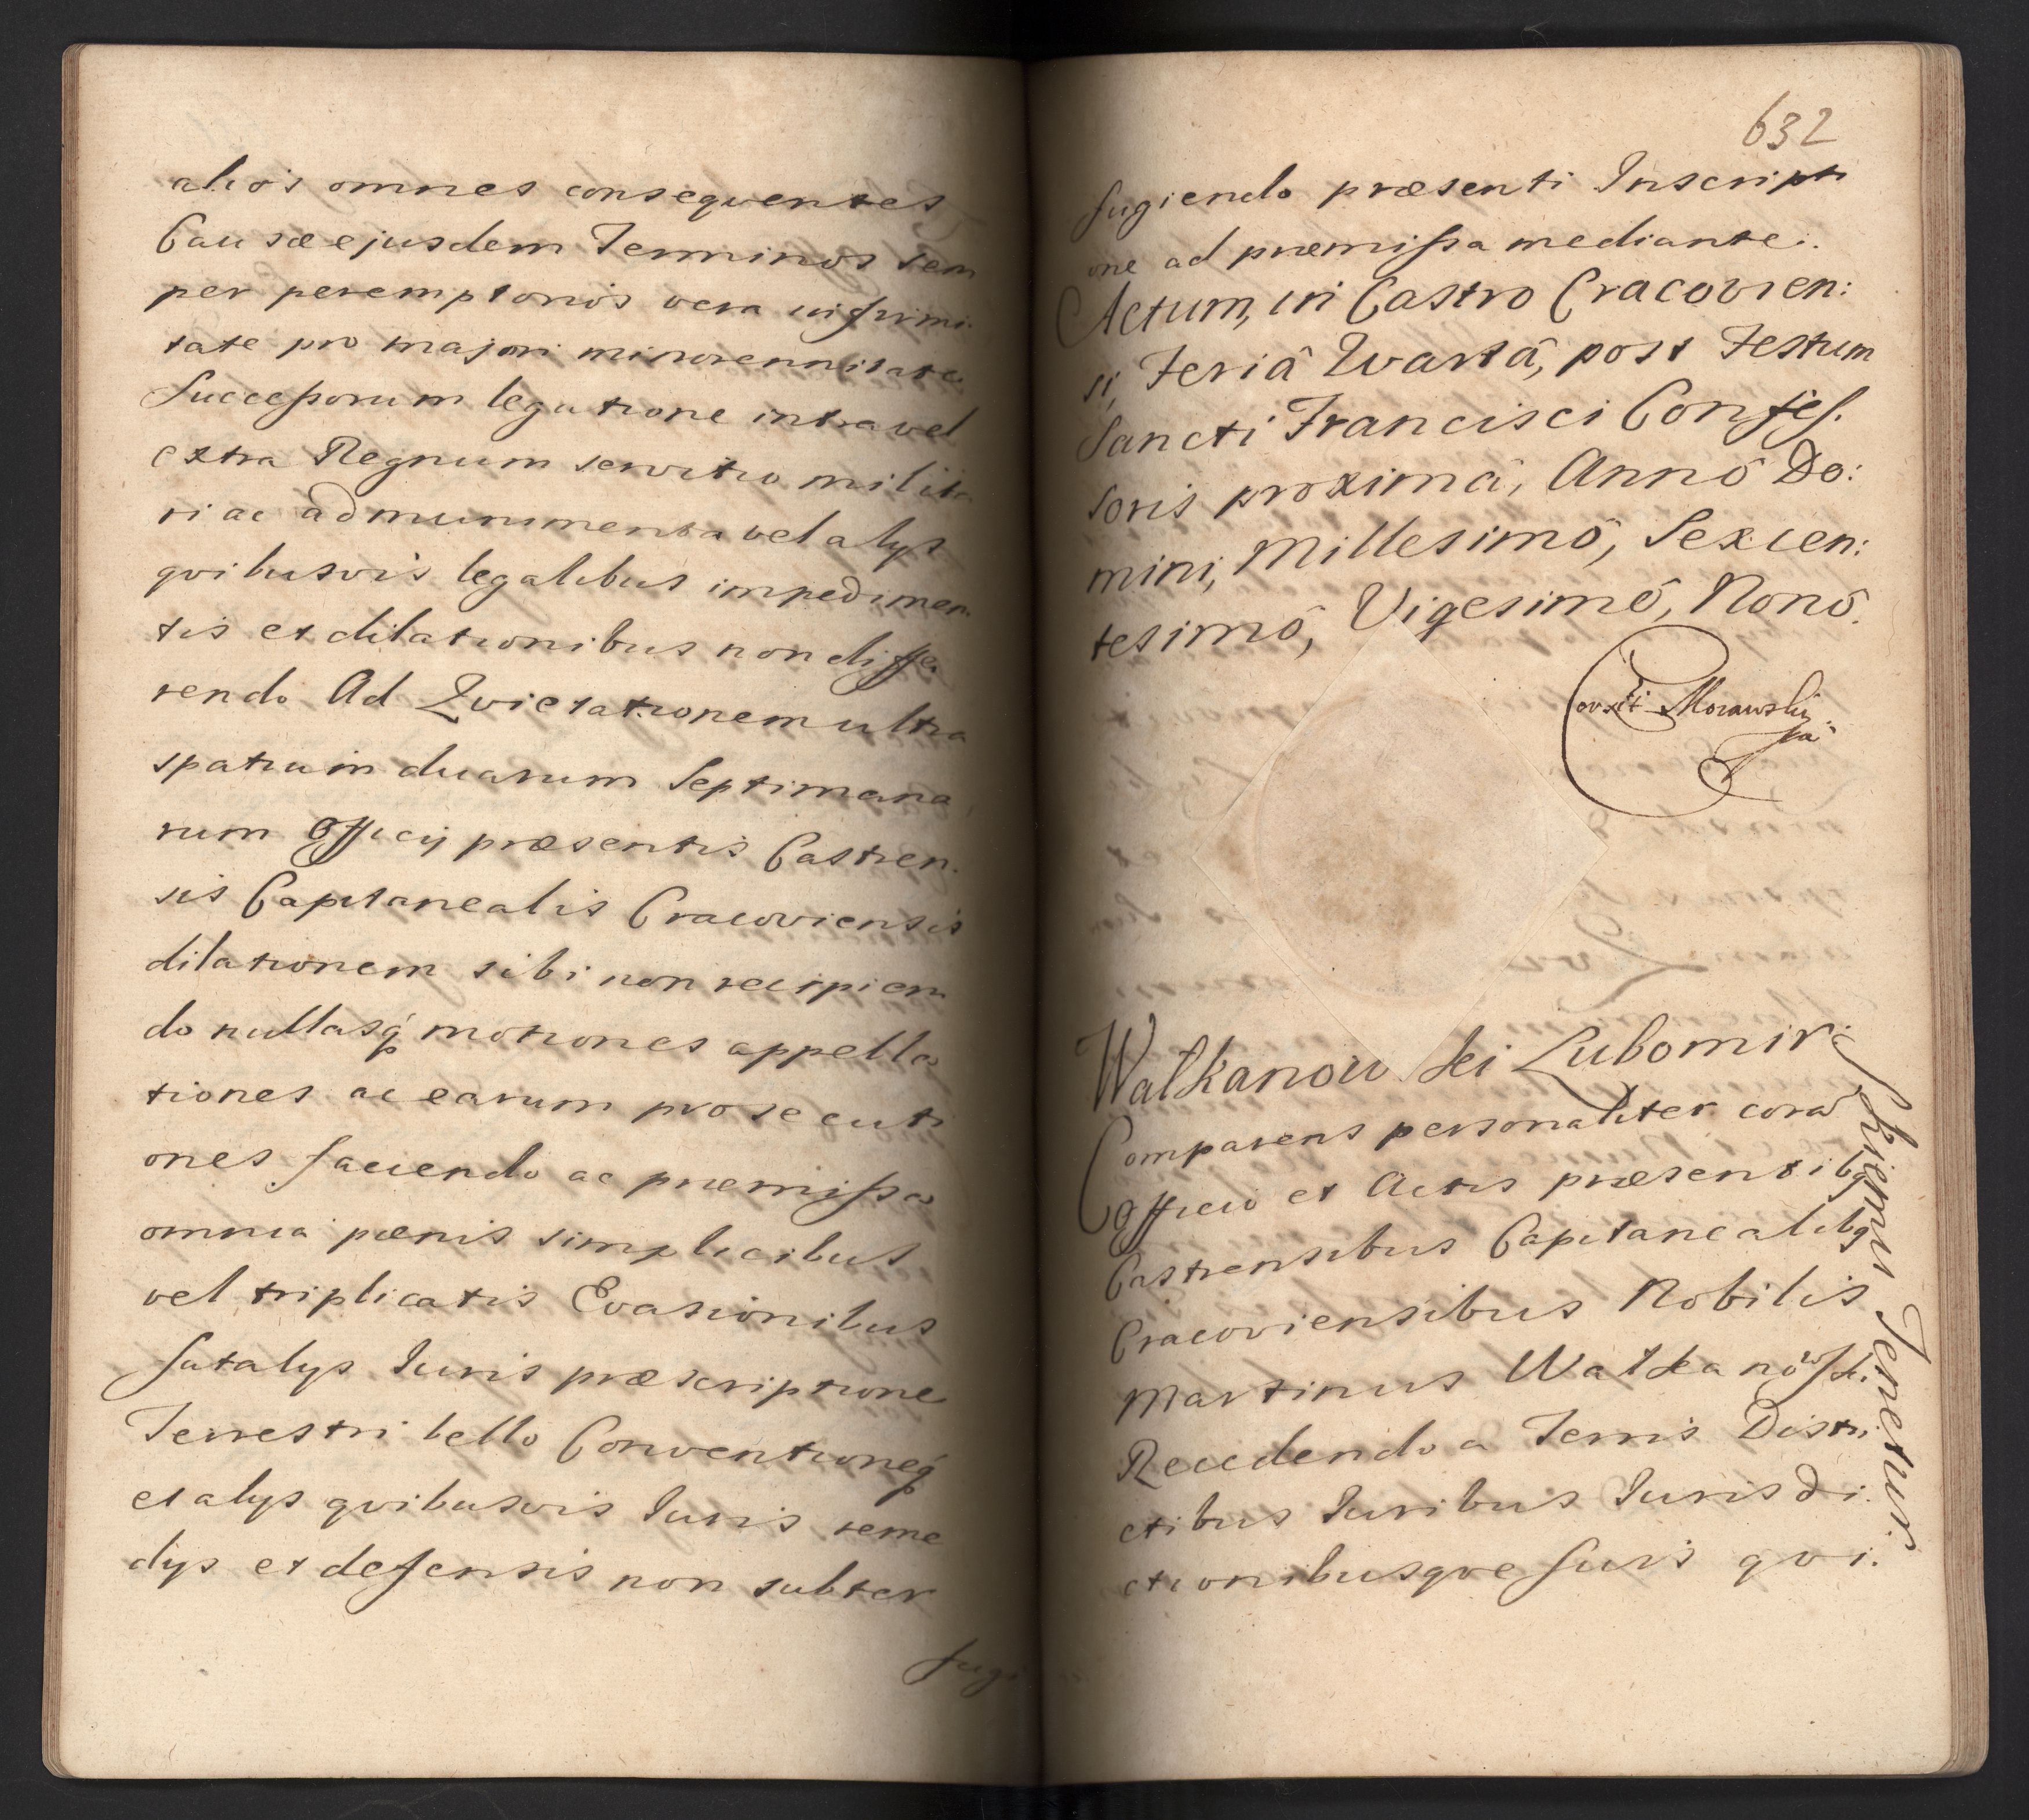 alios omnes consequentes
Causæ ejusdem Terminos sem
per peremptorios vera infirmi
tate pro majori minorennitate
Successorum legatione intra vel
extra Regnum servitio milita
ri ac ad munimenta vel alys
qvibusvis legalibus impedimen
tis et dilationibus non diffe
rendo Ad Qvietationem ultra
spatium duarum Septimana
rum Officij præsentis Castren.
sis Capitanealis Cracoviensis
dilationem sibi non recipien
do nullasq́ motiones appella
tiones ac earum prosecuti
ones faciendo ac præmissa
omnia pænis simplicibus
vel triplicatis Evasionibus
fatalys Iuris præscriptione
Terrestri bello Conventioneq́
et alys qvibusvis Iuris reme
dys et defensis non subter
fugi
632
fugiendo præsenti Inscripti
one ad præmissa mediante.
Actum, in Castro Cracovien:
si, Feriâ Qvartâ, post Festum
Sancti Francisci Confes.
soris proximâ, Annô Do:
mini, Millesimô, Sexcen:
tesimô, Vigesimô, Nonô.
Corexit Morawsky
Walkanowskei Lubomir:
Skiemu Tenetur.
Comparens personaliter corã
Officio et Actis præsentibq
Castrensibus Capitanealibq
Cracoviensibus Nobilis
Martinus Walkanowski.
Recedendo a Terris Distri.
ctibus Iuribus Iurisdi.
ctionibusqve suis qvi.